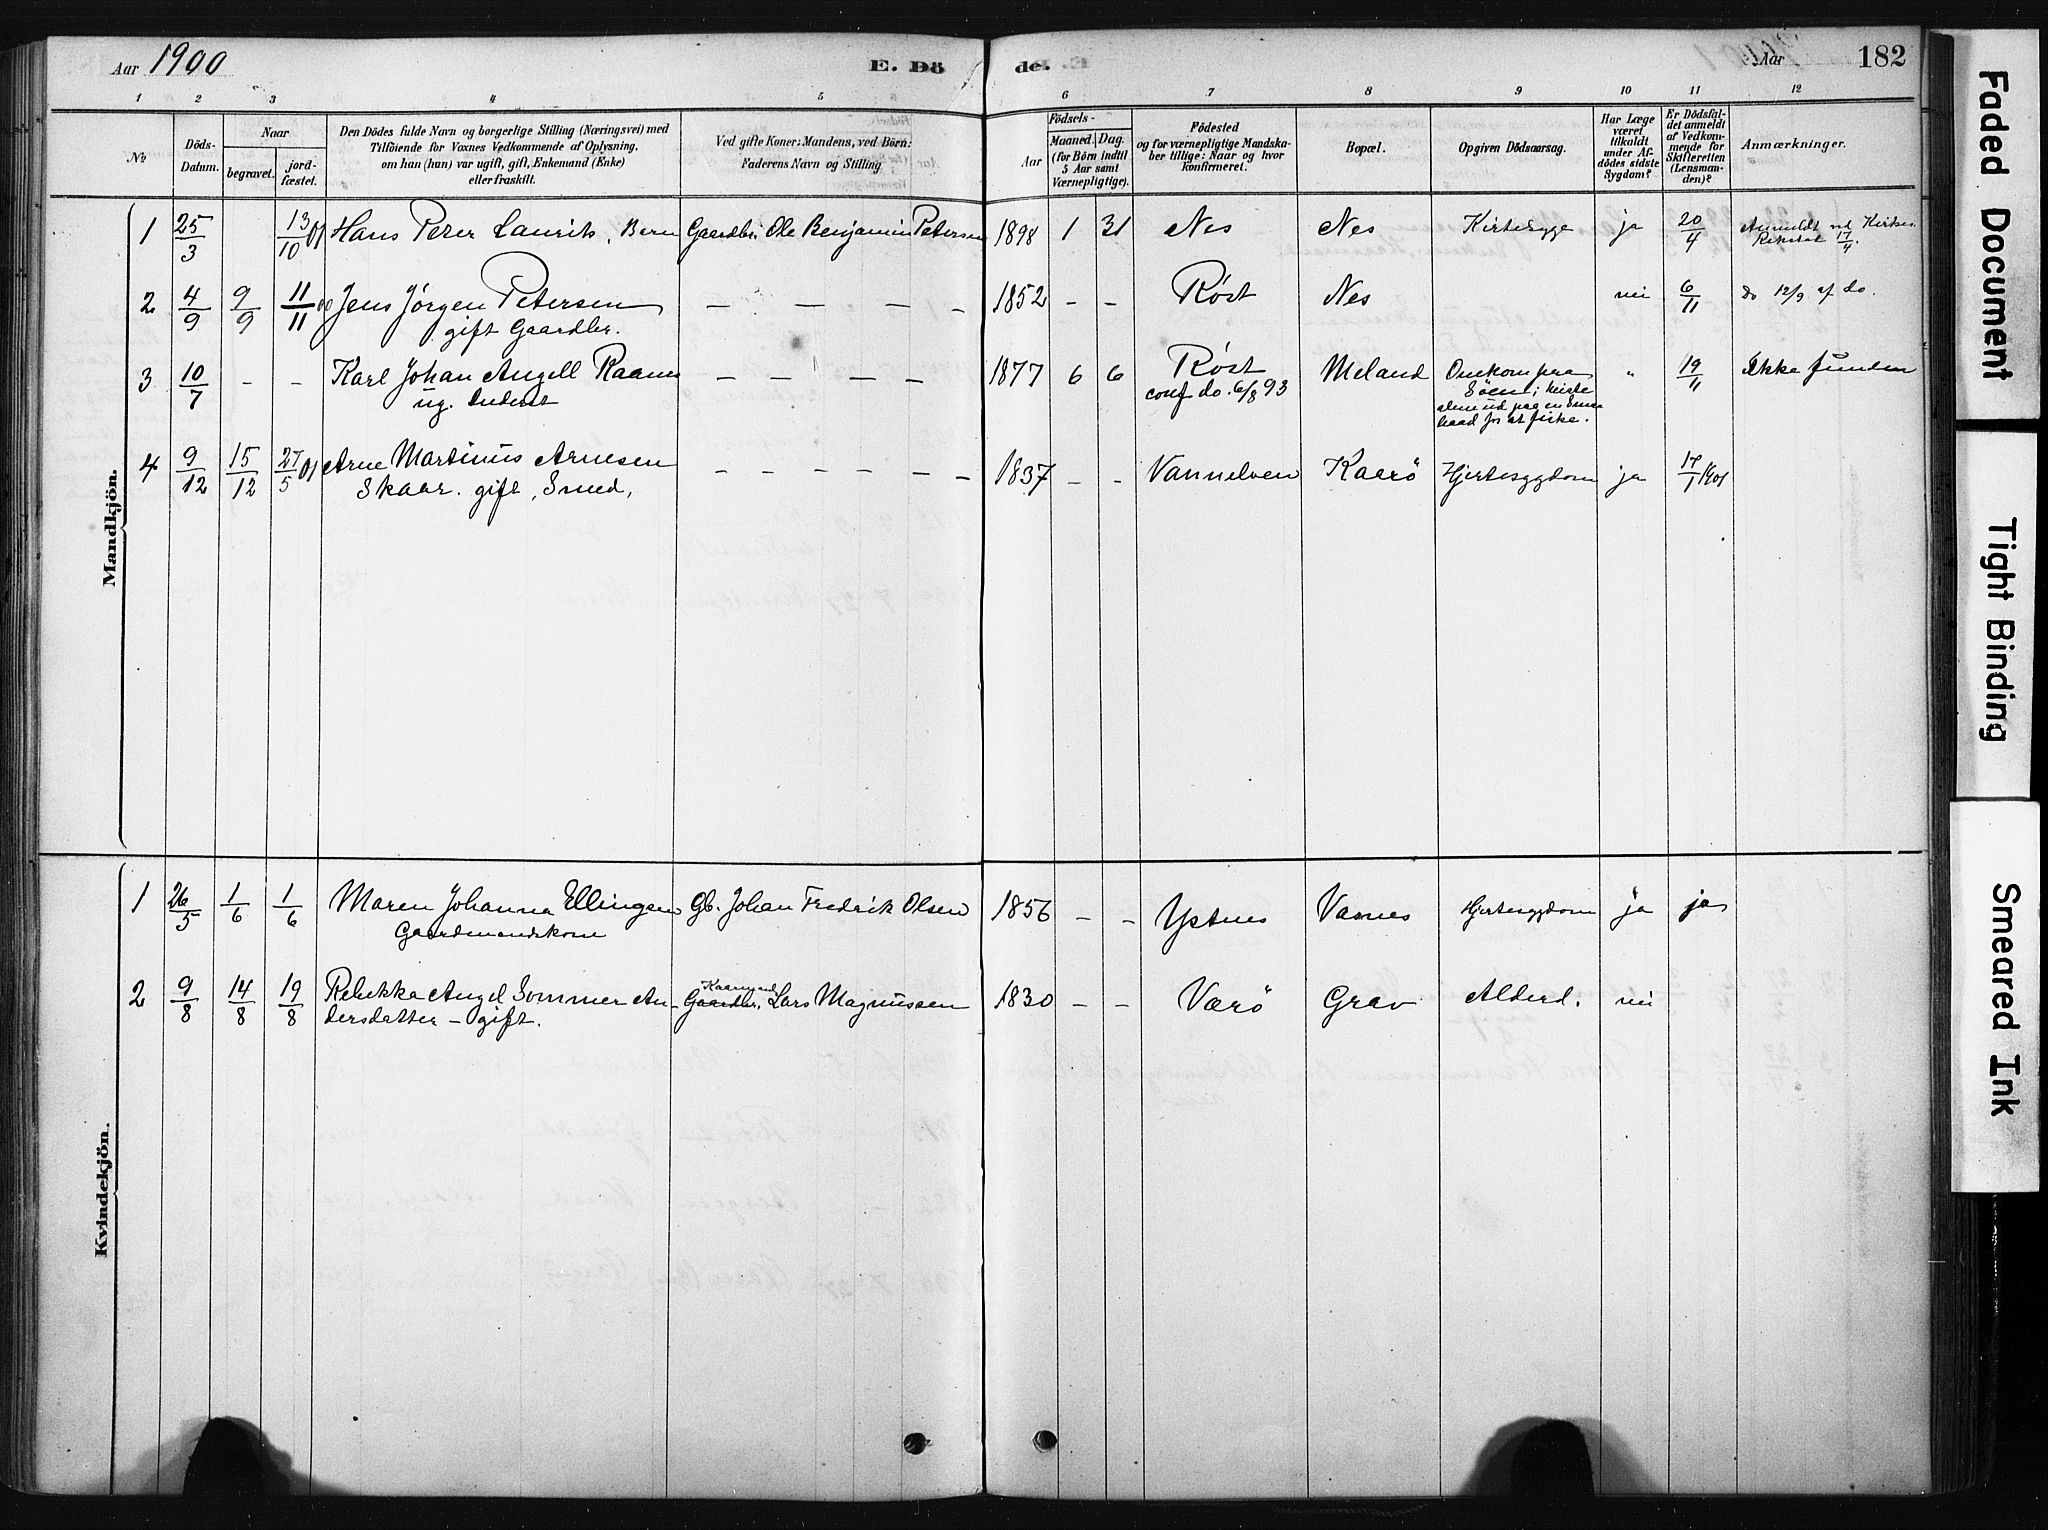 Aar 1900
E. Dö de.
Aar
182
1 2 3 4 5 6 7 8 9 10 11 12
No
Döds-
Datum.
Naar
begravet.
jord-
fæstet.
Den Dödes fulde Navn og borgerlige Stilling (Næringsvei) med
Tilföiende for Voxnes Vedkommende af Oplysning,
om han (hun) var ugift, gift, Enkemand (Enke)
eller fraskilt.
Ved gifte Koner: Mandens, ved Börn:
Faderens Navn og Stilling
Födsels-
Aar
Maaned. Dag.
(for Börn indtil
5 Aar samt
Værnepligtige).
Födested
og for værnepligtige Mandska-
ber tillige: Naar og hvor
konfirmeret.
Bopæl.
Opgiven Dödsaarsag.
Har Læge
været
tilkaldt
under Af-
dödes sidste
Sygdom?
Er Dödsfal-
det anmeldt
af Vedkom-
mende for
Skifteretten
(Lensman-
den)?
Anmærkninger.
Mandkjön.
1 25/3 13/10 01 Hans Peter Laurits, Barn Gaardbr. Ole Benjamin Petersen 1898 1 31 Nes Nes Kirtelsyge ja 20/4 Anmeldt ved Kirkes.
17/4.
2 4/9 9/9 11/11 00 Jens Jörgen Petersen – – – – 1852 – – Röst Nes nei 6/11 do 12/9 af do.
gift Gaardbr.
3 10/7 – – Karl Johan Angell – – – – 1877 6 6 Röst Meland Omkom paa 〃 19/11 Ikke funden
ug. conf do. 6/8 93 Söen;
alene ud paa en
baad for at fiske.
4 9/12 15/12 27/5 01 Arne Martinus Arnesen – – – – – – 1837 – – Vannelven Kaarö Hjertesygdom ja 17/1 1901
Skaar. gift, Smed,
Kvindekjön.
1 26/5 1/6 1/6 Maren Johanna Ellingsen Gb. Johan Fredrik Olsen 1856 – – Ystnes Varnes Hjertesygdom ja ja
Gaardmandskone
2 9/8 14/8 19/8 Rebekka Angel Sommer An- Gaardbr. Lars Magnussen 1830 – – Værö Grav Alderd. nei
dersdatter – gift.
Faded Document
Tight Binding
Smeared Ink